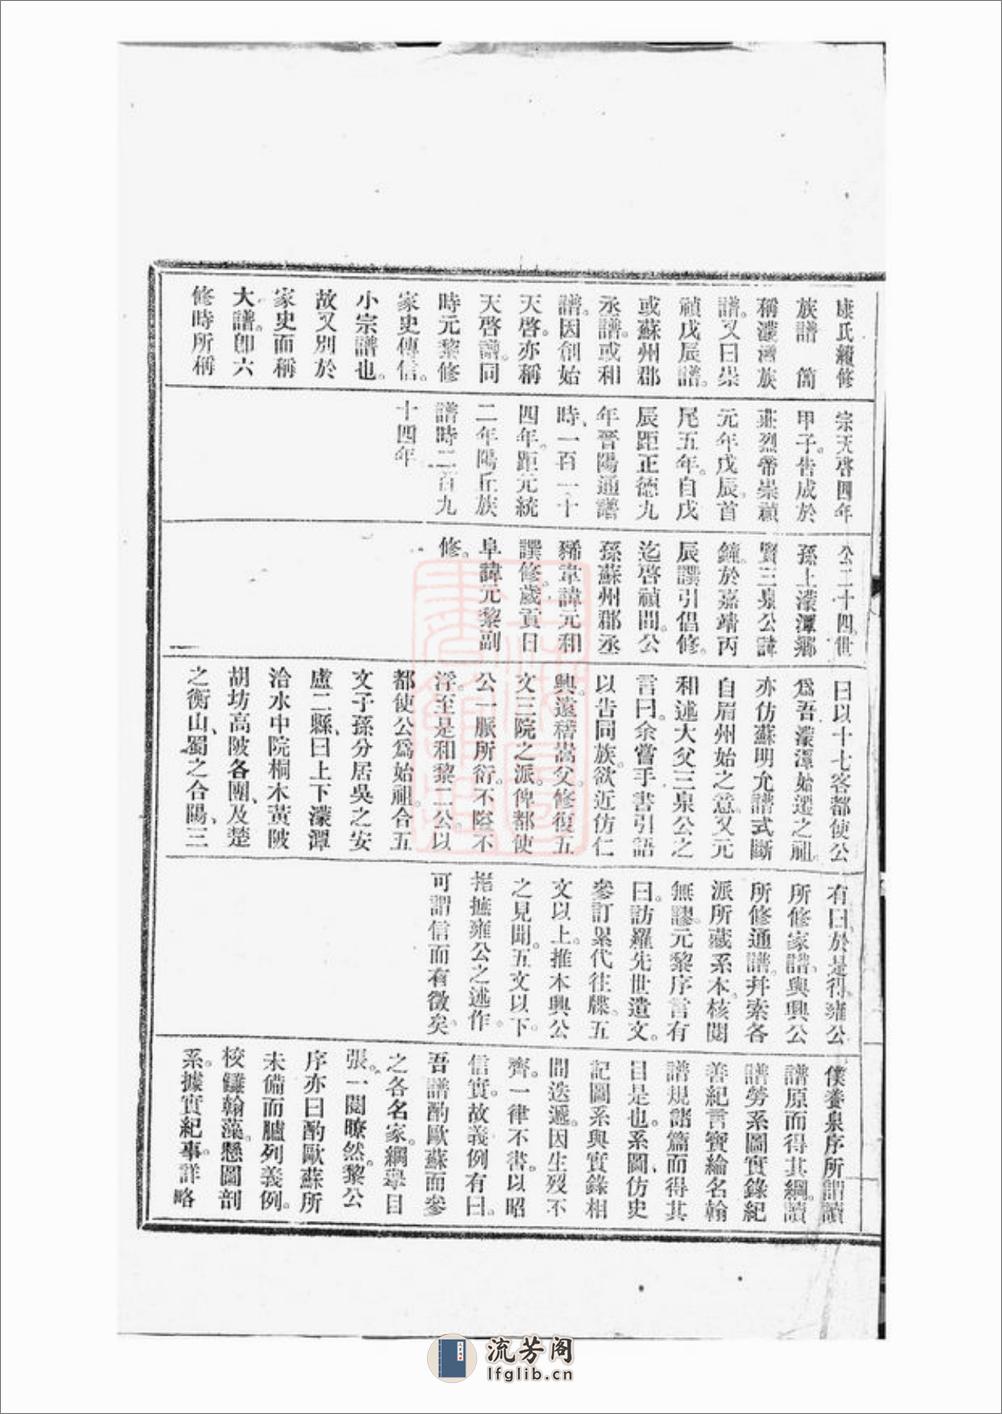 康氏續修
族譜　簡
稱濛潭族
譜。又曰崇
禎戊辰譜。
或蘇州郡
丞譜。或和
譜。因創始
天啓。亦稱
天啓譜。同
時元黎修
家史傳信。
小宗譜也。
故又別於
家史而稱
大譜。卽六
修時所稱
宗天啓四年
甲子。告成於
莊烈帝崇禎
元年戊辰。首
尾五年。自戊
辰距正德九
年晉陽通譜
時、一百一十
四年。距元統
二年陽丘族
譜時二百九
十四年
公二十四世
孫上濛潭鄉
賢三泉公諱
鐘於嘉靖丙
辰譔引倡修。
迄啓禎間。公
孫蘇州郡丞
豨韋諱元和
譔修。歲貢日
阜諱元黎副
修。
曰以十七客都使公
爲吾濛潭始遷之祖。
亦仿蘇明允譜式斷
自眉州始之意。又元
和述大父三泉公之
言曰。余嘗手書引語
以告同族。欲近仿仁
興。遠稽嵩父。修復五
文三院之派。俾都使
公一脈所衍。不隘不
浮。至是和黎二公。以
都使公爲始祖。合五
文子孫分居吳之安
盧二縣、曰上下濛潭
洽水中院桐木黃陂
胡坊高陂各團、及楚
之衡山、蜀之合陽、三
有曰。於是得雍公
所修家譜、與興公
所修通譜。幷索各
派所藏系本。核閱
無謬。元黎序言有
曰。訪羅先世遺文。
參訂累代往牒。五
文以上。推本興公
之見聞。五文以下。
指摭雍公之述作。
可謂信而有徵矣。
僕養泉序所謂讀
譜原而得其綱。讀
譜勞系圖實錄紀
善紀言寶綸名翰
譜規諸篇而得其
目是也。系圖、仿史
記圖系與實錄相
間迭遞。因生歿不
齊。一律不書。以昭
信實。故義例有曰。
吾譜酌歐蘇而參
之各名家。綱舉目
張。一閱瞭然。黎公
序亦曰酌歐蘇所
未備而臚列義例。
校讎翰藻。懸圖剖
系。據實紀事。詳略
流芳阁
lfglib.cn